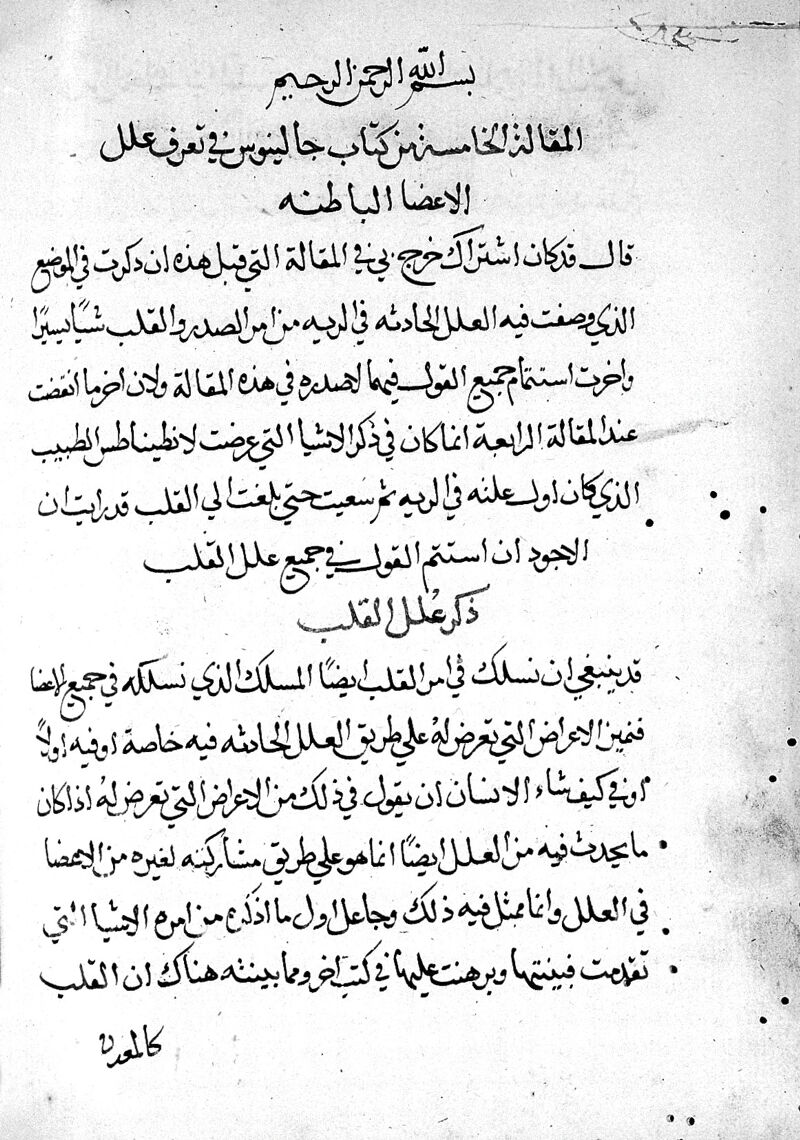 بسم الله الرحمن الرحيم
المقالة الخامسة من كتاب جالينوس في تعرف علل
الاعضا الباطنه
قال قد كان اشتراك خرج بي في المقالة التي قبل هذه ان ذكرت في الموضع
الذي وصفت فيه العلل الحادثه في الريه من امر الصدر والقلب شيًا يسيرًا
واخرت استتمام جميع القول فيهما لاصدره في هذه المقالة ولان اخر ما انقضت
عند المقالة الرابعة انما كان في ذكر الاشيا التي عرضت لانطيناطس الطبيب
الذي كان اول علته في الريه ثم سعيت حتي بلغت الي القلب قد رايت ان
الاجود ان استتم القول في جميع علل القلب
ذكر علل القلب
قد ينبغي ان نسلك في امر القلب ايضًا المسلك الذي نسلكه في جميع الاعضا
فنميز الاعراض التي تعرض له علي طريق العلل الحادثه فيه خاصة او فيه اولًا
او في كيف شاء الانسان ان يقول في ذلك من الاعراض التي تعرض له اذا كان
ما يحدث فيه من العلل ايضًا انما هو علي طريق مشاركته لغيره من الاعضا
في العلل وانما مثل فيه ذلك وجاعل اول ما اذكره من امره الاشيا التي
تقدمت فبينتها وبرهنت عليها في كتب اخر ومما بينته هناك ان القلب
كالمعدن